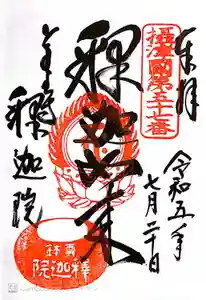 奉拝
摂津國第五十七番
令和五年
七月二十日
釋迦如来
釋迦院
尊鉢
釋迦院